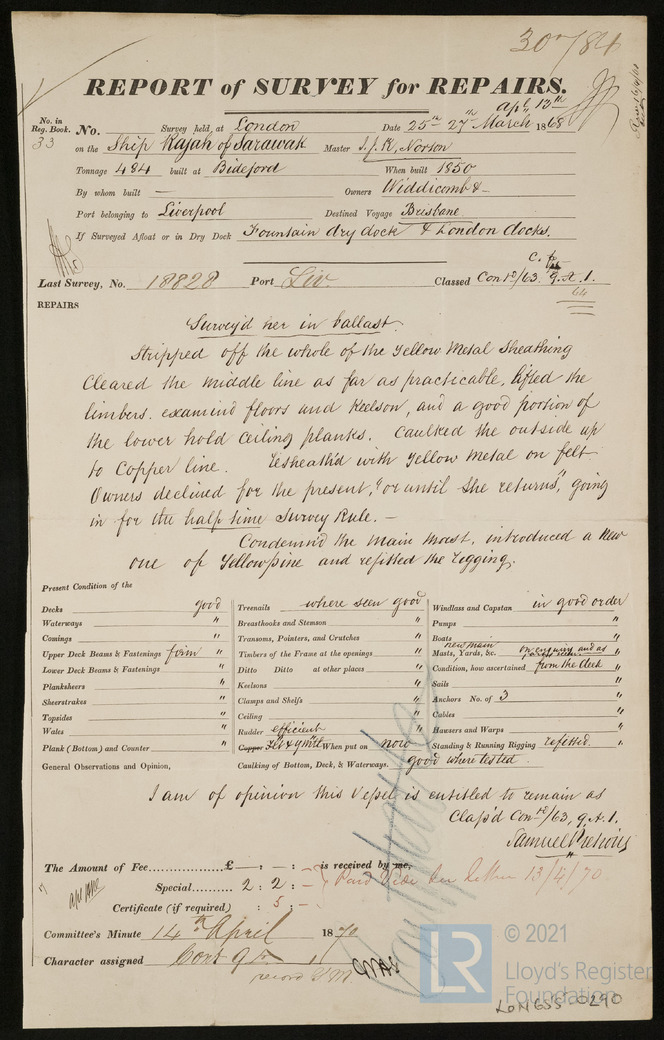 30 / 84
REPORT of SURVEY for REPAIRS.
No. in
Reg. Book.
33
No. Survey held at London Date 25th 27th March Apl 12th 1868
on the Ship Rajah of Sarawak Master J. J. R. Norton
Tonnage 484 built at Bideford When built 1850
By whom built — Owners Widdicomb & —
Port belonging to Liverpool Destined Voyage Brisbane
If Surveyed Afloat or in Dry Dock Fountain dry dock & London docks.
Last Survey, No. 18828 Port Liv Classed Contd/63. 9. A. 1.
64
REPAIRS
Survey'd her in ballast.
Stripped off the whole of the Yellow Metal Sheathing
Cleared the middle line as far as practicable, lifted the
limbers. examined floors and Keelson, and a good portion of
the lower hold Ceiling planks. Caulked the outside up
to Copper line. Resheath'd with Yellow Metal on felt
Owners declined for the present, "or until She returns", going
in for the half time Survey Rule. —
Condemn'd the Main Mast, introduced a New
one of Yellow pine and refitted the rigging.
Present Condition of the
Decks good
Waterways "
Comings "
Upper Deck Beams & Fastenings firm "
Lower Deck Beams & Fastenings "
Planksheers "
Sheerstrakes "
Topsides "
Wales "
Plank (Bottom) and Counter "
Treenails where seen good
Breasthooks and Stemson "
Transoms, Pointers, and Crutches "
Timbers of the Frame at the openings "
Ditto Ditto at other places "
Keelsons "
Clamps and Shelfs "
Ceiling "
Rudder efficient "
Copper Felt & YMtl When put on now
Caulking of Bottom, Deck, & Waterways. good where tested.
Windlass and Capstan in good order
Pumps "
Boats "
new main
Masts, Yards, &c. on enquiry and as "
Condition, how ascertained from the deck
Sails "
Anchors No. of 3 "
Cables "
Hawsers and Warps "
Standing & Running Rigging refitted "
General Observations and Opinion,
I am of opinion this Vessel is entitled to remain as
Class'd Contd/63, 9. A. 1.
Samuel Pretious
The Amount of Fee £ — : — : — is received by me,
Special 2 : 2 : —
Certificate (if required) : 5 : —
Paid Vide Letter 13/4/70
Committee's Minute 14th April 1870
Character assigned Cont 9
record YM
LR
© 2021
Lloyd's Register
Foundation
LON655-0290